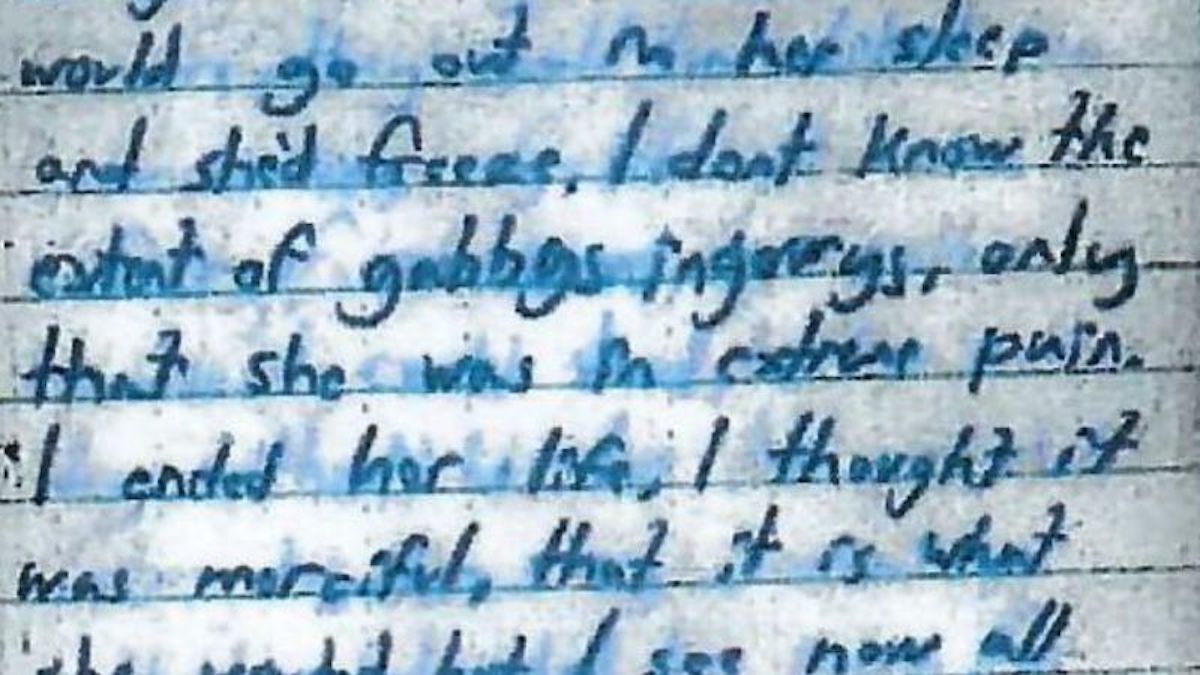 would go out in her sleep
and she'd freeze, I dont know the
extent of gabbys ingurys, only
that she was in extreme pain.
I ended her life, I thought it
was merciful, that it is what
she wanted but I see now all